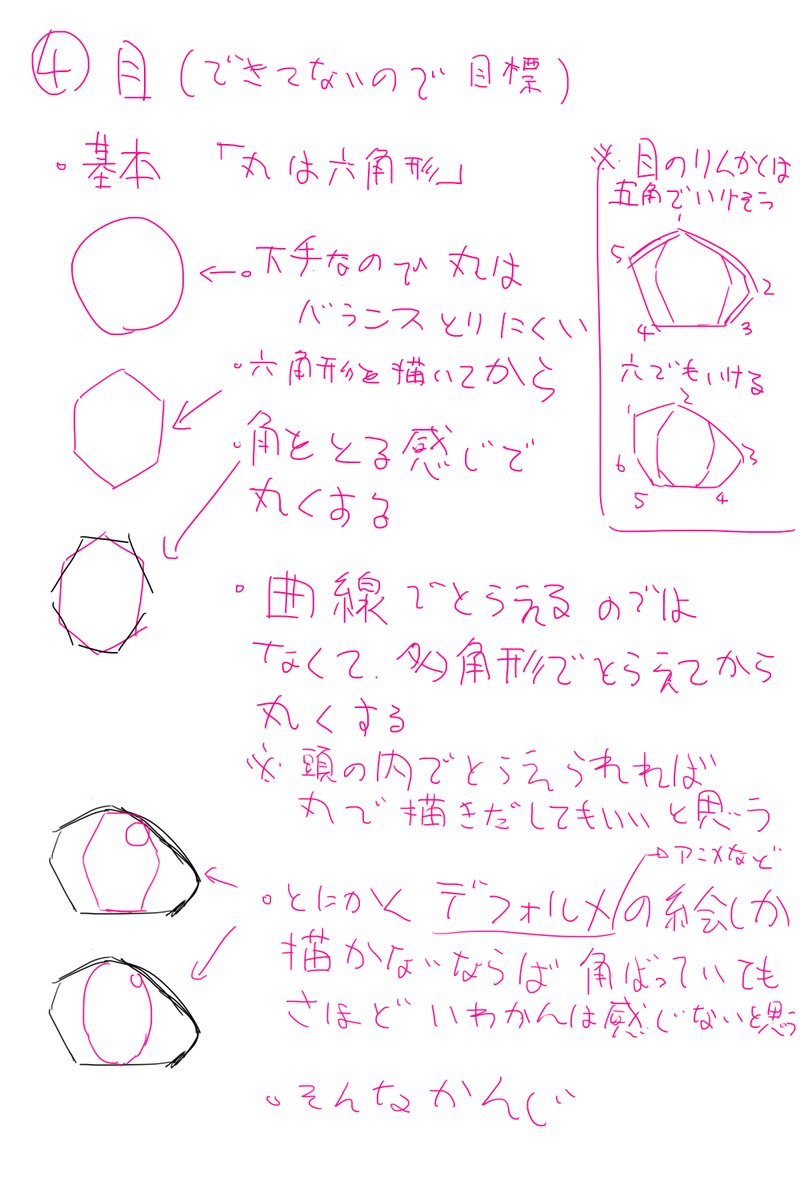 ④ 目 (できてないので 目標)
・基本 「丸は六角形」
・下手なので 丸は
バランスとりにくい
・六角形を描いてから
・角をとる感じで
丸くする
※ 目のりんかくは
五角でいけそう
1
5
2
4
3
六でもいける
2
1
3
6
5
4
・曲線でとらえるのでは
なくて、多角形でとらえてから
丸くする
※ 頭の内でとらえられれば
丸で描きだしてもいいと思う
→アニメなど
・とにかく デフォルメの絵しか
描かないならば 角ばっていても
さほど いわかんは感じないと思う
・そんなかんじ